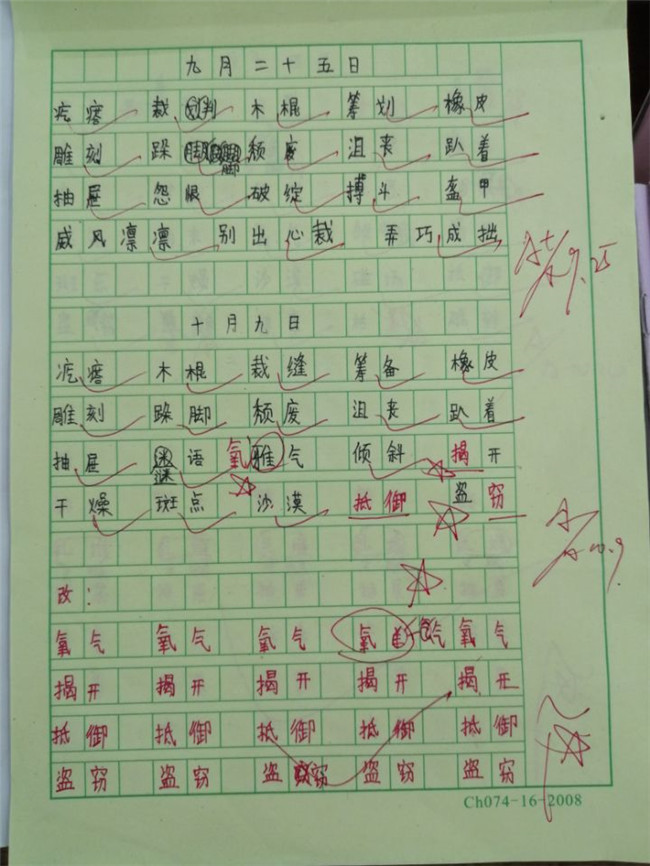 九月二十五日
疙瘩 裁判 木棍 筹划 橡皮
雕刻 跺脚 颓废 沮丧 趴着
抽屉 怨恨 破绽 搏斗 盔甲
威风凛凛 别出心裁 弄巧成拙
9.25
十月九日
疙瘩 木棍 裁缝 筹备 橡皮
雕刻 跺脚 颓废 沮丧 趴着
抽屉 谜语 氧气 倾斜 揭开
干燥 斑点 沙漠 抵御 盗窃
10.9
改:
氧气 氧气 氧气 氧气 氧气
揭开 揭开 揭开 揭开 揭开
抵御 抵御 抵御 抵御 抵御
盗窃 盗窃 盗窃 盗窃 盗窃
Ch074-16-2008